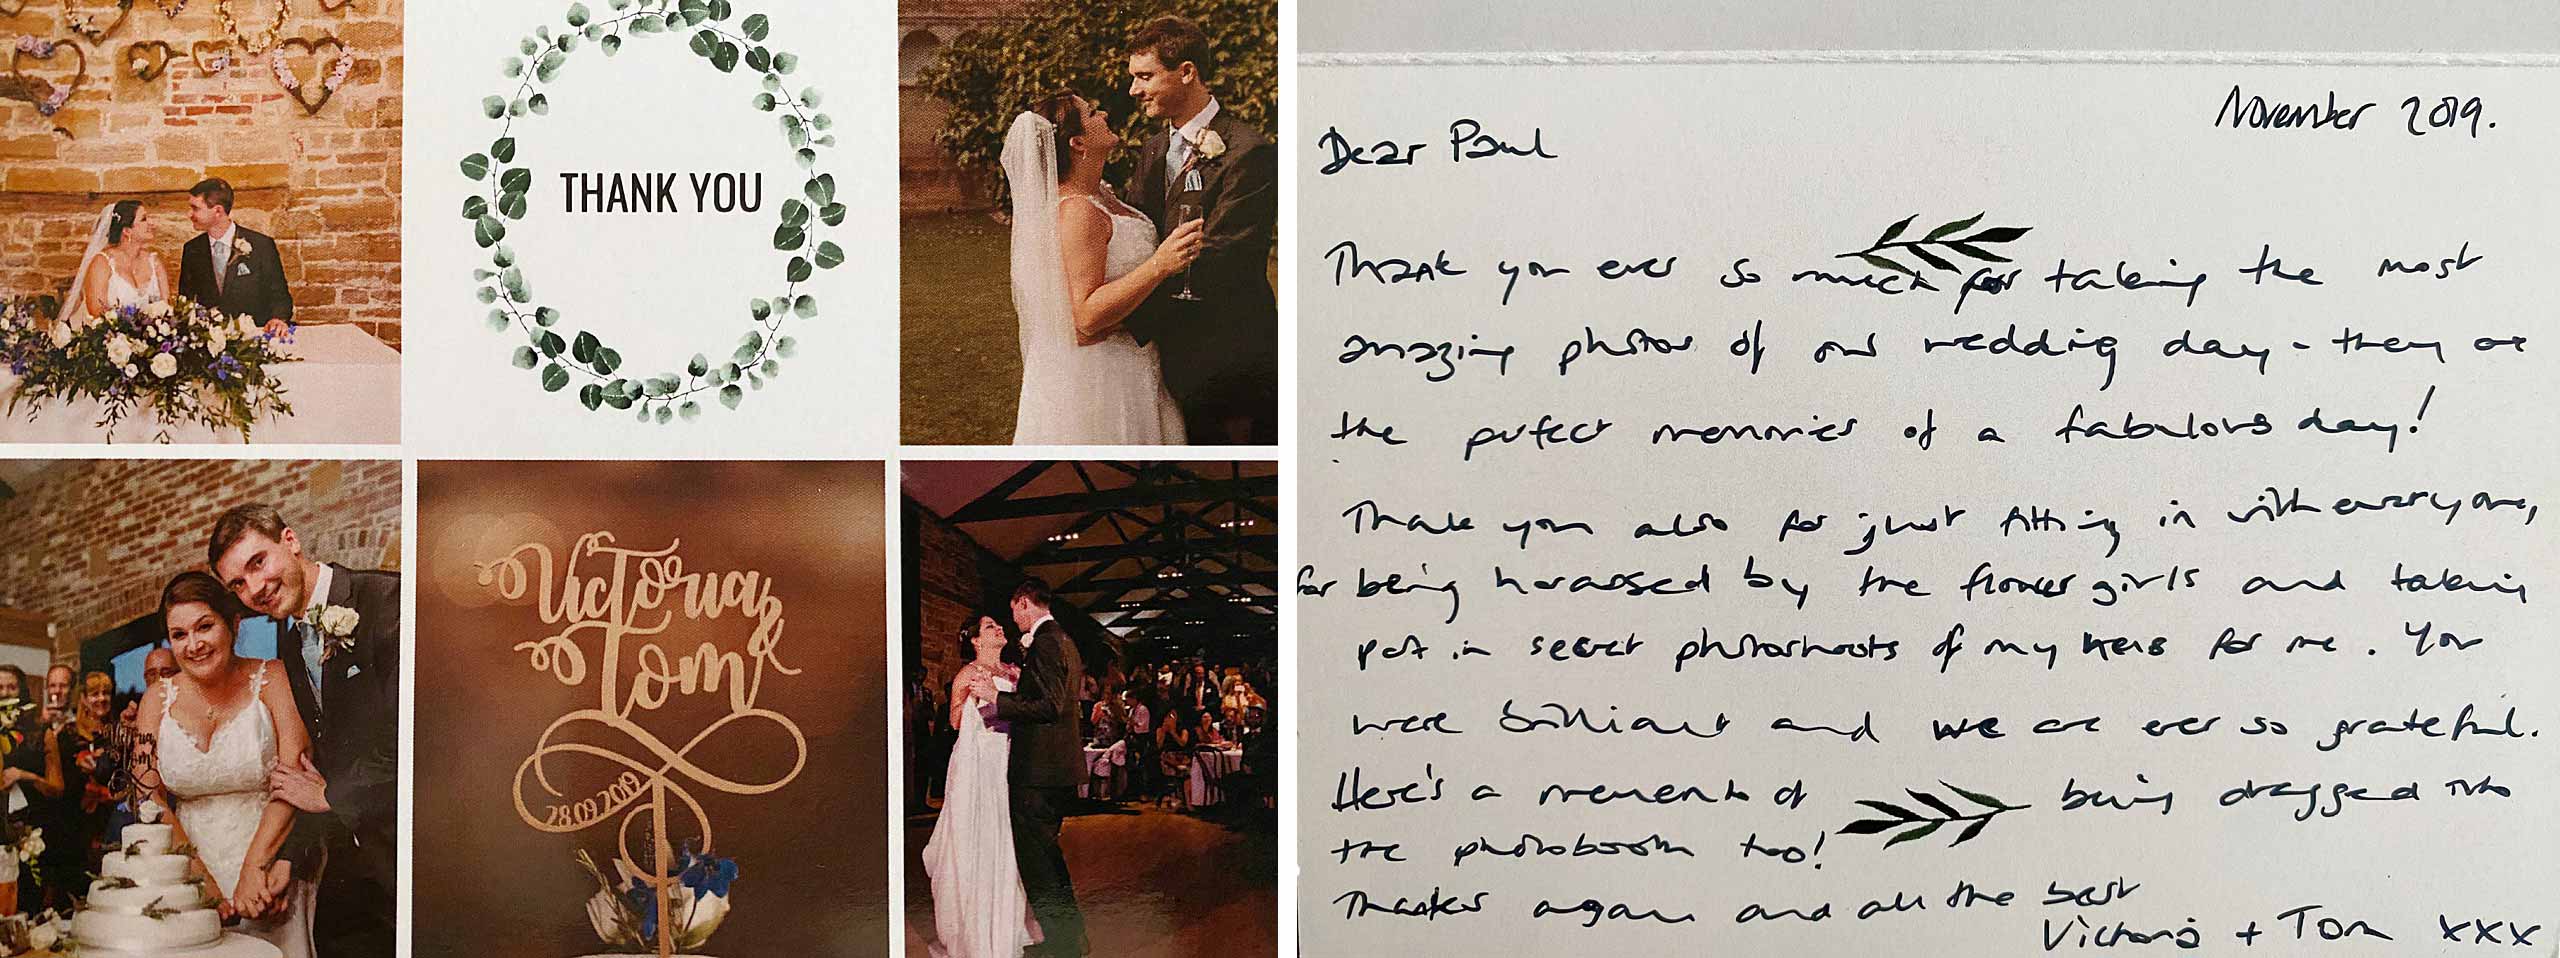 THANK YOU
Victoria &
Tom
28.09.2019
November 2019.
Dear Paul
Thank you ever so much for taking the most
amazing photos of our wedding day - they are
the perfect memories of a fabulous day!
Thank you also for just fitting in with everyone,
for being harassed by the flower girls and taking
part in secret photoshoots of my hens for me. You
were brilliant and we are ever so grateful.
Here's a memento of being dragged into
the photobooth too!
Thanks again and all the best
Victoria + Tom xxx